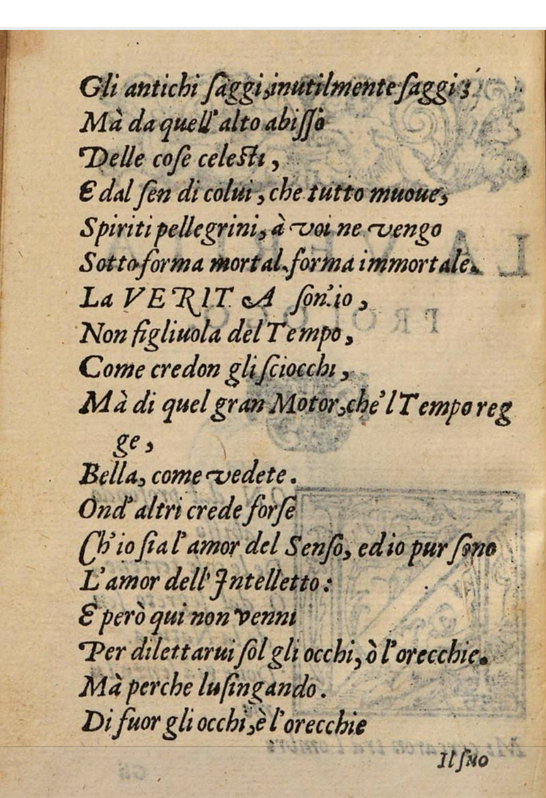 Gli antichi saggi, inutilmente saggi;
Mà da quell'alto abisso
Delle cose celesti,
E dal sen di colui, che tutto muoue,
Spiriti pellegrini, à voi ne vengo
Sotto forma mortal, forma immortale.
La VERITA son'io,
Non figliuola del Tempo,
Come credon gli sciocchi,
Mà di quel gran Motor, che'l Tempo reg
ge,
Bella, come vedete.
Ond'altri crede forse
Ch'io sia l'amor del Senso, ed io pur sono
L'amor dell'Intelletto:
E però qui non venni
Per dilettarui sol gli occhi, ò l'orecchie.
Mà perche lusingando.
Di fuor gli occhi, è l'orecchie
Il suo